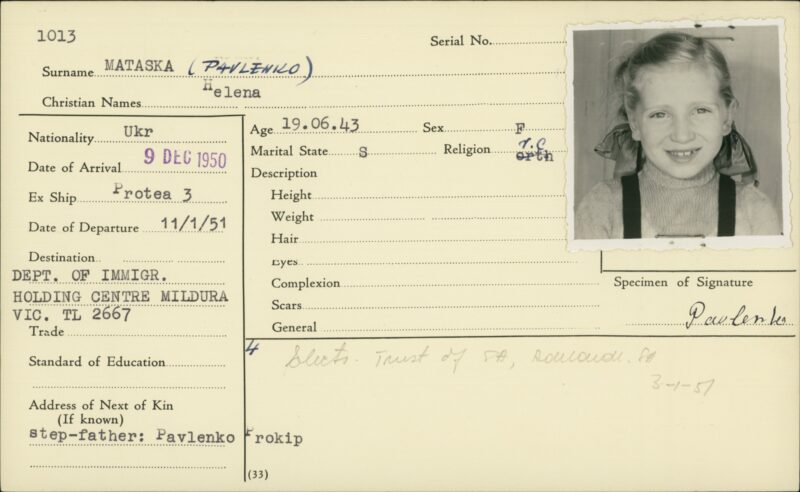 1013
Serial No.
Surname MATASKA (PAVLENKO)
Christian Names Helena
Nationality Ukr
Date of Arrival 9 DEC 1950
Ex Ship Protea 3
Date of Departure 11/1/51
Destination
DEPT. OF IMMIGR.
HOLDING CENTRE MILDURA
VIC. TL 2667
Trade
Standard of Education
Address of Next of Kin
(If known)
step-father: Pavlenko Prokip
Age 19.06.43 Sex F
Marital State S Religion orth r.c
Description
Height
Weight
Hair
Eyes
Complexion
Scars
General
Specimen of Signature
Pavlenko
4 Elects. Trust of SA,
3-1-51
(33)